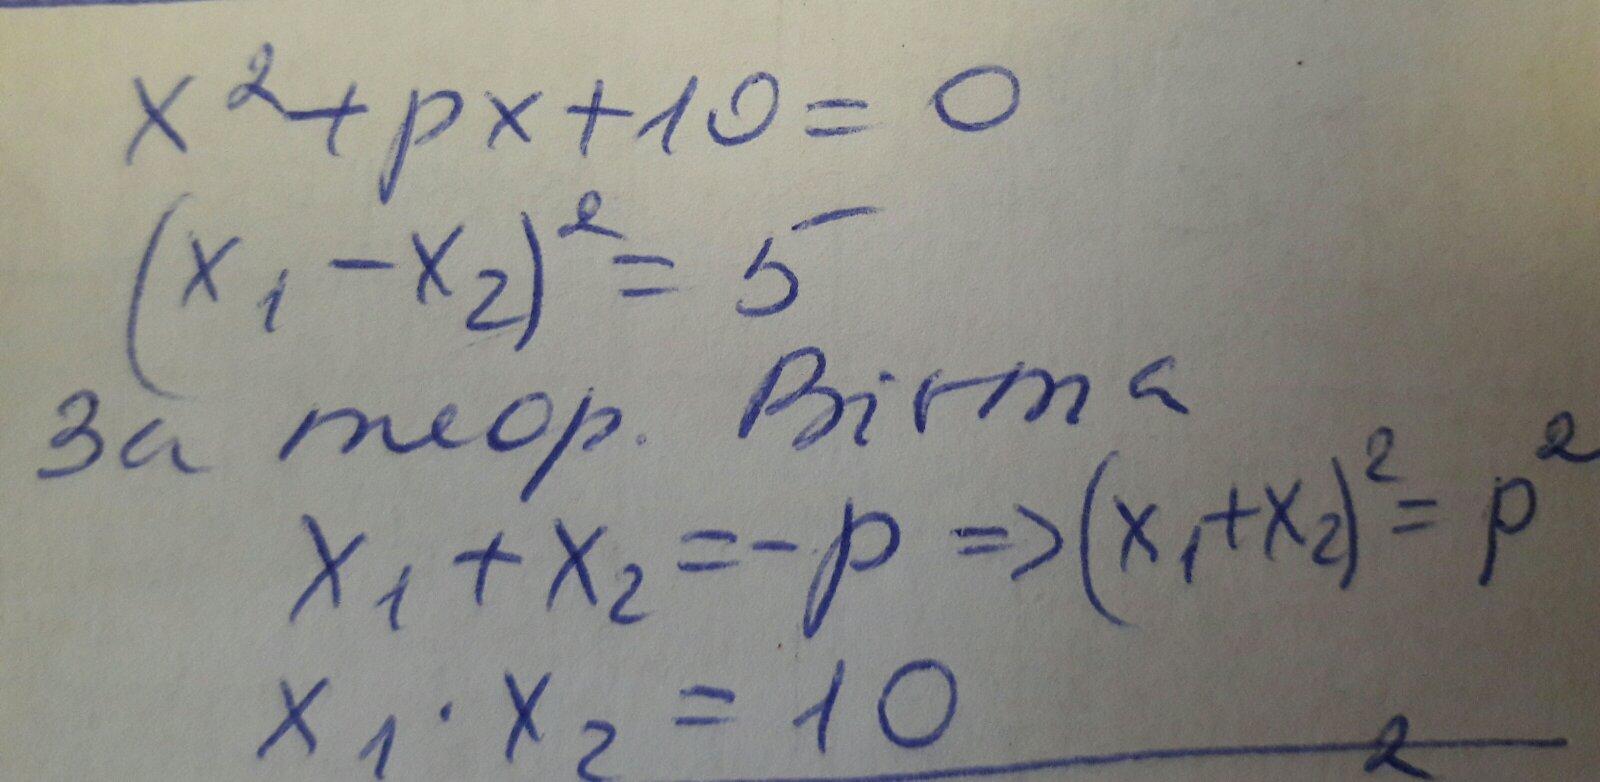 x²+px+10=0
(x₁-x₂)²=5
За теор. Вієта
x₁+x₂=-p=>(x₁+x₂)²=p²
x₁·x₂=10
2